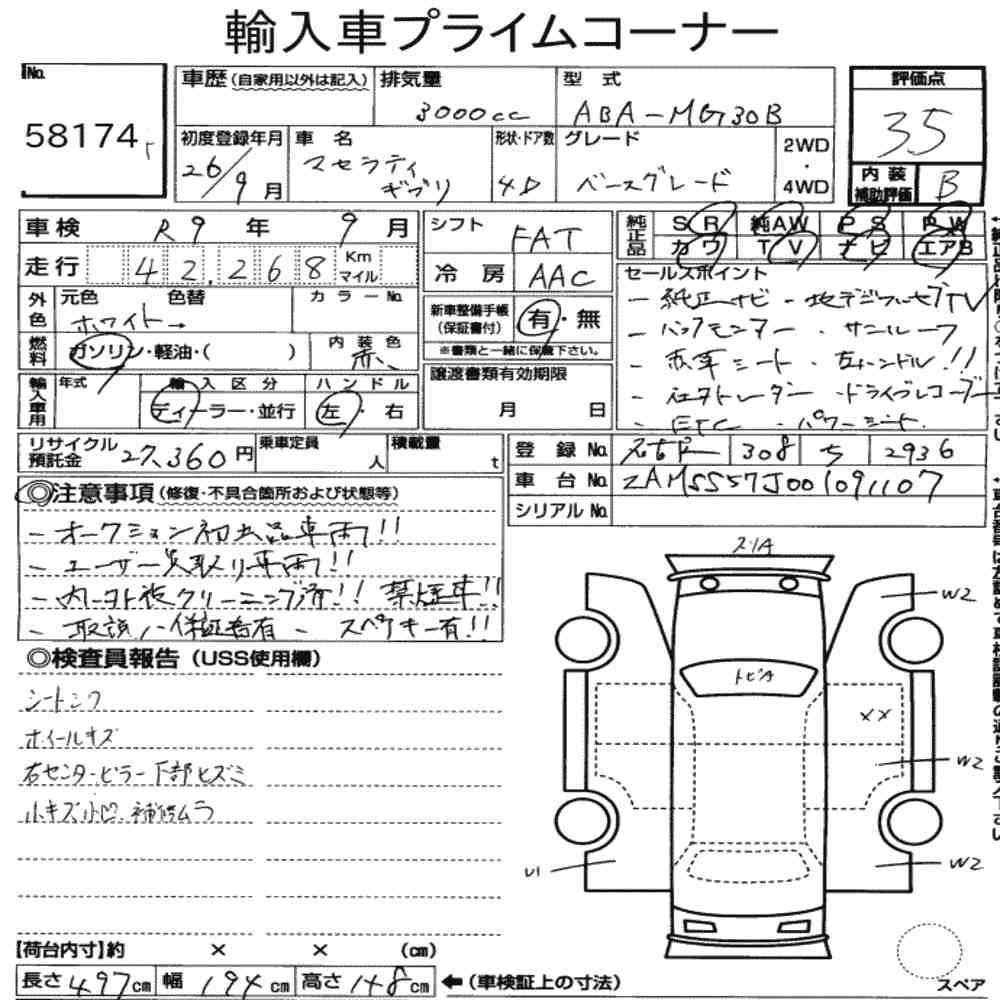 輸入車プライムコーナー
No.
58174
車歴(自家用以外は記入)
排気量
3000cc
型式
ABA-MG30B
評価点
3.5
初度登録年月
26/9月
車名
マセラティ
ギブリ
形状・ドア数
4D
グレード
ベースグレード
2WD
・
4WD
内装
補助評価
B
車検 R9年 9月
走行 42,268 Km マイル
シフト FAT
冷房 AAC
純正品
SR 純AW PS PW
カワ TV ナビ エアB
外色
元色 色替
ホワイト→
カラーNo.
燃料
ガソリン・軽油・( )
内装色
赤
新車整備手帳
(保証書付)
有・無
※書類と一緒に保管下さい。
セールスポイント
- 純正ナビ - 地デジフルセグTV
- バックモニター ・サンルーフ
- 赤革シート ・左ハンドル!!
- 社外レーダー ・ドライブレコーダー
- ETC ・パワーシート
輸入車用
年式
輸入区分
ディーラー・並行
ハンドル
左・右
譲渡書類有効期限
月 日
リサイクル
預託金
27,360円
乗車定員
人
積載量
t
登録No. 308 ち 2936
車台No. ZAMSS57J001091107
シリアルNo.
◎注意事項(修復・不具合箇所および状態等)
- オークション初出品車両!!
- ユーザー買取り車両!!
- 内外装クリーニング済!! 禁煙車!!
- 取説/保証書有 - スペアキー有!!
◎検査員報告(USS使用欄)
シートシワ
ホイールキズ
右センターピラー下部ヒズミ
小キズ小凹、補修ムラ
スリA
トビA
W2
XX
W2
W2
U1
【荷台内寸】約 × × (cm)
長さ497cm 幅194cm 高さ148cm ←(車検証上の寸法)
スペア